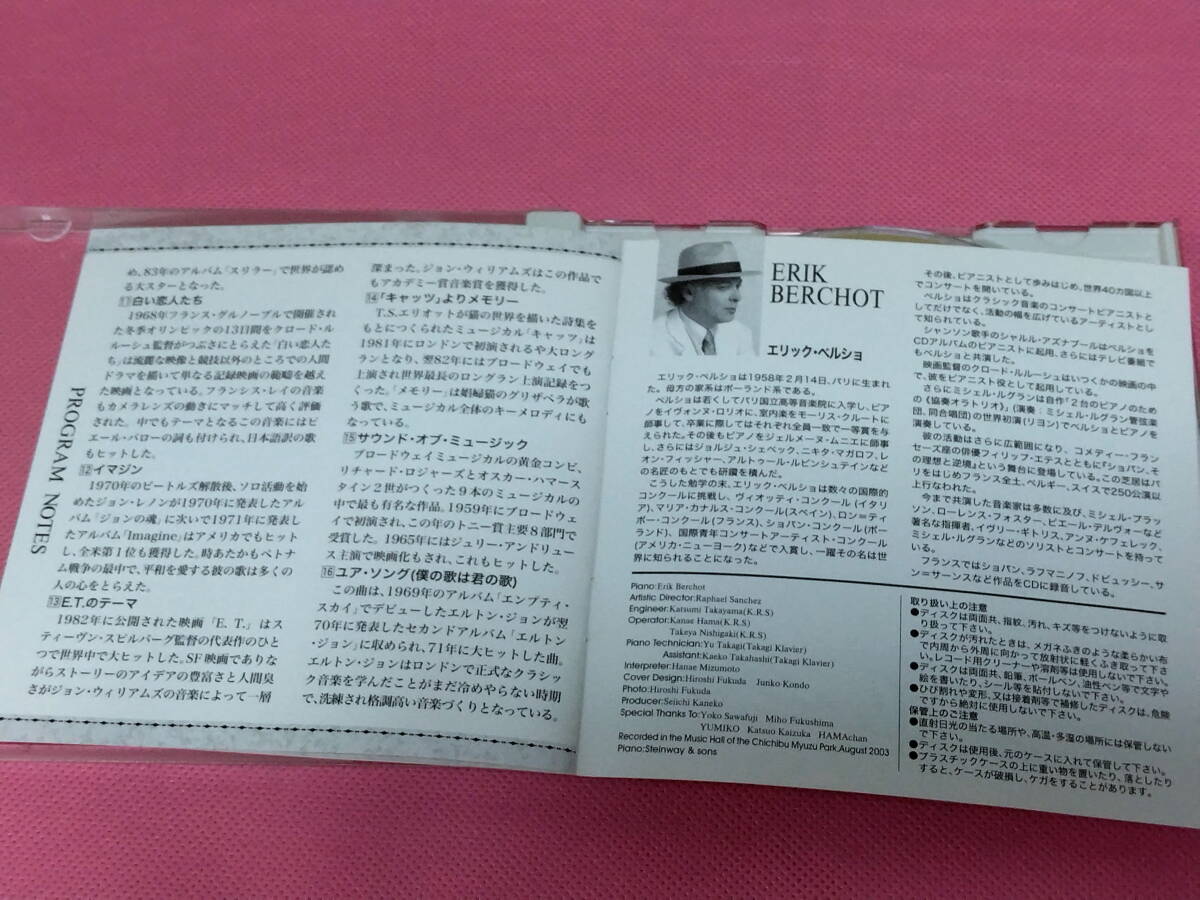 PROGRAM NOTES
め、83年のアルバム「スリラー」で世界が認め
る大スターとなった。
11 白い恋人たち
1968年フランス・グルノーブルで開催され
た冬季オリンピックの13日間をクロード・ル
ルーシュ監督がつぶさにとらえた「白い恋人た
ち」は流麗な映像と競技以外のところでの人間
ドラマを描いて単なる記録映画の範疇を越え
た映画となっている。フランシス・レイの音楽
もカメラレンズの動きにマッチして高く評価
された。中でもテーマとなるこの音楽にはピ
エール・バローの詞も付けられ、日本語訳の歌
もヒットした。
12 イマジン
1970年のビートルズ解散後、ソロ活動を始
めたジョン・レノンが1970年に発表したアル
バム「ジョンの魂」に次いで1971年に発表し
たアルバム「Imagine」はアメリカでもヒット
し、全米第1位も獲得した。時あたかもベトナ
ム戦争の最中で、平和を愛する彼の歌は多くの
人の心をとらえた。
13 E.T.のテーマ
1982年に公開された映画「E. T.」はス
ティーヴン・スピルバーグ監督の代表作のひと
つで世界中で大ヒットした。SF映画でありな
がらストーリーのアイデアの豊富さと人間臭
さがジョン・ウィリアムズの音楽によって一層
深まった。ジョン・ウィリアムズはこの作品で
もアカデミー賞音楽賞を獲得した。
14 「キャッツ」よりメモリー
T.S.エリオットが猫の世界を描いた詩集を
もとにつくられたミュージカル「キャッツ」は
1981年にロンドンで初演されるや大ロング
ランとなり、翌82年にはブロードウェイでも
上演され世界最長のロングラン上演記録をつ
くった。「メモリー」は娼婦猫のグリザベラが歌
う歌で、ミュージカル全体のキーメロディにも
なっている。
15 サウンド・オブ・ミュージック
ブロードウェイミュージカルの黄金コンビ、
リチャード・ロジャースとオスカー・ハマース
タイン2世がつくった9本のミュージカルの
中で最も有名な作品。1959年にブロードウェ
イで初演され、この年のトニー賞主要8部門で
受賞した。1965年にはジュリー・アンドリュー
ス主演で映画化もされ、これもヒットした。
16 ユア・ソング(僕の歌は君の歌)
この曲は、1969年のアルバム「エンプティ・
スカイ」でデビューしたエルトン・ジョンが翌
70年に発表したセカンドアルバム「エルトン
・ジョン」に収められ、71年に大ヒットした曲。
エルトン・ジョンはロンドンで正式なクラシッ
ク音楽を学んだことがまだ冷めやらない時期
で、洗練され格調高い音楽づくりとなっている。
ERIK
BERCHOT
エリック・ベルショ
エリック・ベルショは1958年2月14日、パリに生まれ
た。母方の家系はポーランド系である。
ベルショは若くしてパリ国立高等音楽院に入学し、ピア
ノをイヴォンヌ・ロリオに、室内楽をモーリス・クルートに
師事して、卒業に際してはそれぞれ全員一致で一等賞を与
えられた。その後もピアノをジェルメーヌ・ムニエに師事
し、さらにはジョルジュ・シェベック、ニキタ・マガロフ、レ
オン・フィッシャー、アルトゥール・ルビンシュテインなど
の名匠のもとでも研鑽を積んだ。
こうした勉学の末、エリック・ベルショは数々の国際的
コンクールに挑戦し、ヴィオッティ・コンクール(イタリ
ア)、マリア・カナルス・コンクール(スペイン)、ロン=ティ
ボー・コンクール(フランス)、ショパン・コンクール(ポー
ランド)、国際青年コンサートアーティスト・コンクール
(アメリカ・ニューヨーク)などで入賞し、一躍その名は世
界に知られることになった。
その後、ピアニストとして歩みはじめ、世界40カ国以上
でコンサートを開いている。
ベルショはクラシック音楽のコンサートピアニストと
してだけでなく、活動の幅を広げているアーティストとし
て知られている。
シャンソン歌手のシャルル・アズナブールはベルショを
CDアルバムのピアニストに起用、さらにはテレビ番組で
もベルショと共演した。
映画監督のクロード・ルルーシュはいくつかの映画の中
で、彼をピアニスト役として起用している。
さらにミシェル・ルグランは自作「2台のピアノのため
の《協奏オラトリオ》」(演奏:ミシェル・ルグラン管弦楽
団、同合唱団)の世界初演(リヨン)でベルショとピアノを
演奏している。
彼の活動はさらに広範囲になり、コメディー・フラン
セーズ座の俳優フィリップ・エテスとともに『ショパン、そ
の理想と逆境』という舞台に登場している。この芝居はパ
リをはじめフランス全土、ベルギー、スイスで250公演以
上行なわれた。
今まで共演した音楽家は多数に及び、ミシェル・プラッ
ソン、ローレンス・フォスター、ピエール・デルヴォーなど
著名な指揮者、イヴリー・ギトリス、アンヌ・ケフェレック、
ミシェル・ルグランなどのソリストとコンサートを持って
いる。
フランスではショパン、ラフマニノフ、ドビュッシー、サ
ン=サーンスなど作品をCDに録音している。
Piano:Erik Berchot
Artistic Director:Raphael Sanchez
Engineer:Katsumi Takayama(K.R.S)
Operator:Kanae Hama(K.R.S)
Takeya Nishigaki(K.R.S)
Piano Technician:Yu Takagi(Takagi Klavier)
Assistant:Kaeko Takahashi(Takagi Klavier)
Interpreter:Hanae Mizumoto
Cover Design:Hiroshi Fukuda Junko Kondo
Photo:Hiroshi Fukuda
Producer:Seiichi Kaneko
Special Thanks To:Yoko Sawafuji Miho Fukushima
YUMIKO Katsuo Kaizuka HAMAchan
Recorded in the Music Hall of the Chichibu Myuzu Park,August 2003
Piano:Steinway & sons
取り扱い上の注意
●ディスクは両面共、指紋、汚れ、キズ等をつけないように取
り扱って下さい。
●ディスクが汚れたときは、メガネふきのような柔らかい布
で内周から外周に向かって放射状に軽くふき取って下さ
い。レコード用クリーナーや溶剤等は使用しないで下さい。
●ディスクは両面共、鉛筆、ボールペン、油性ペン等で文字や
絵を書いたり、シール等を貼付しないで下さい。
●ひび割れや変形、又は接着剤等で補修したディスクは、危険
ですから絶対に使用しないで下さい。
保管上のご注意
●直射日光の当たる場所や、高温・多湿の場所には保管しない
で下さい。
●ディスクは使用後、元のケースに入れて保管して下さい。
●プラスチックケースの上に重い物を置いたり、落としたり
すると、ケースが破損し、ケガをすることがあります。